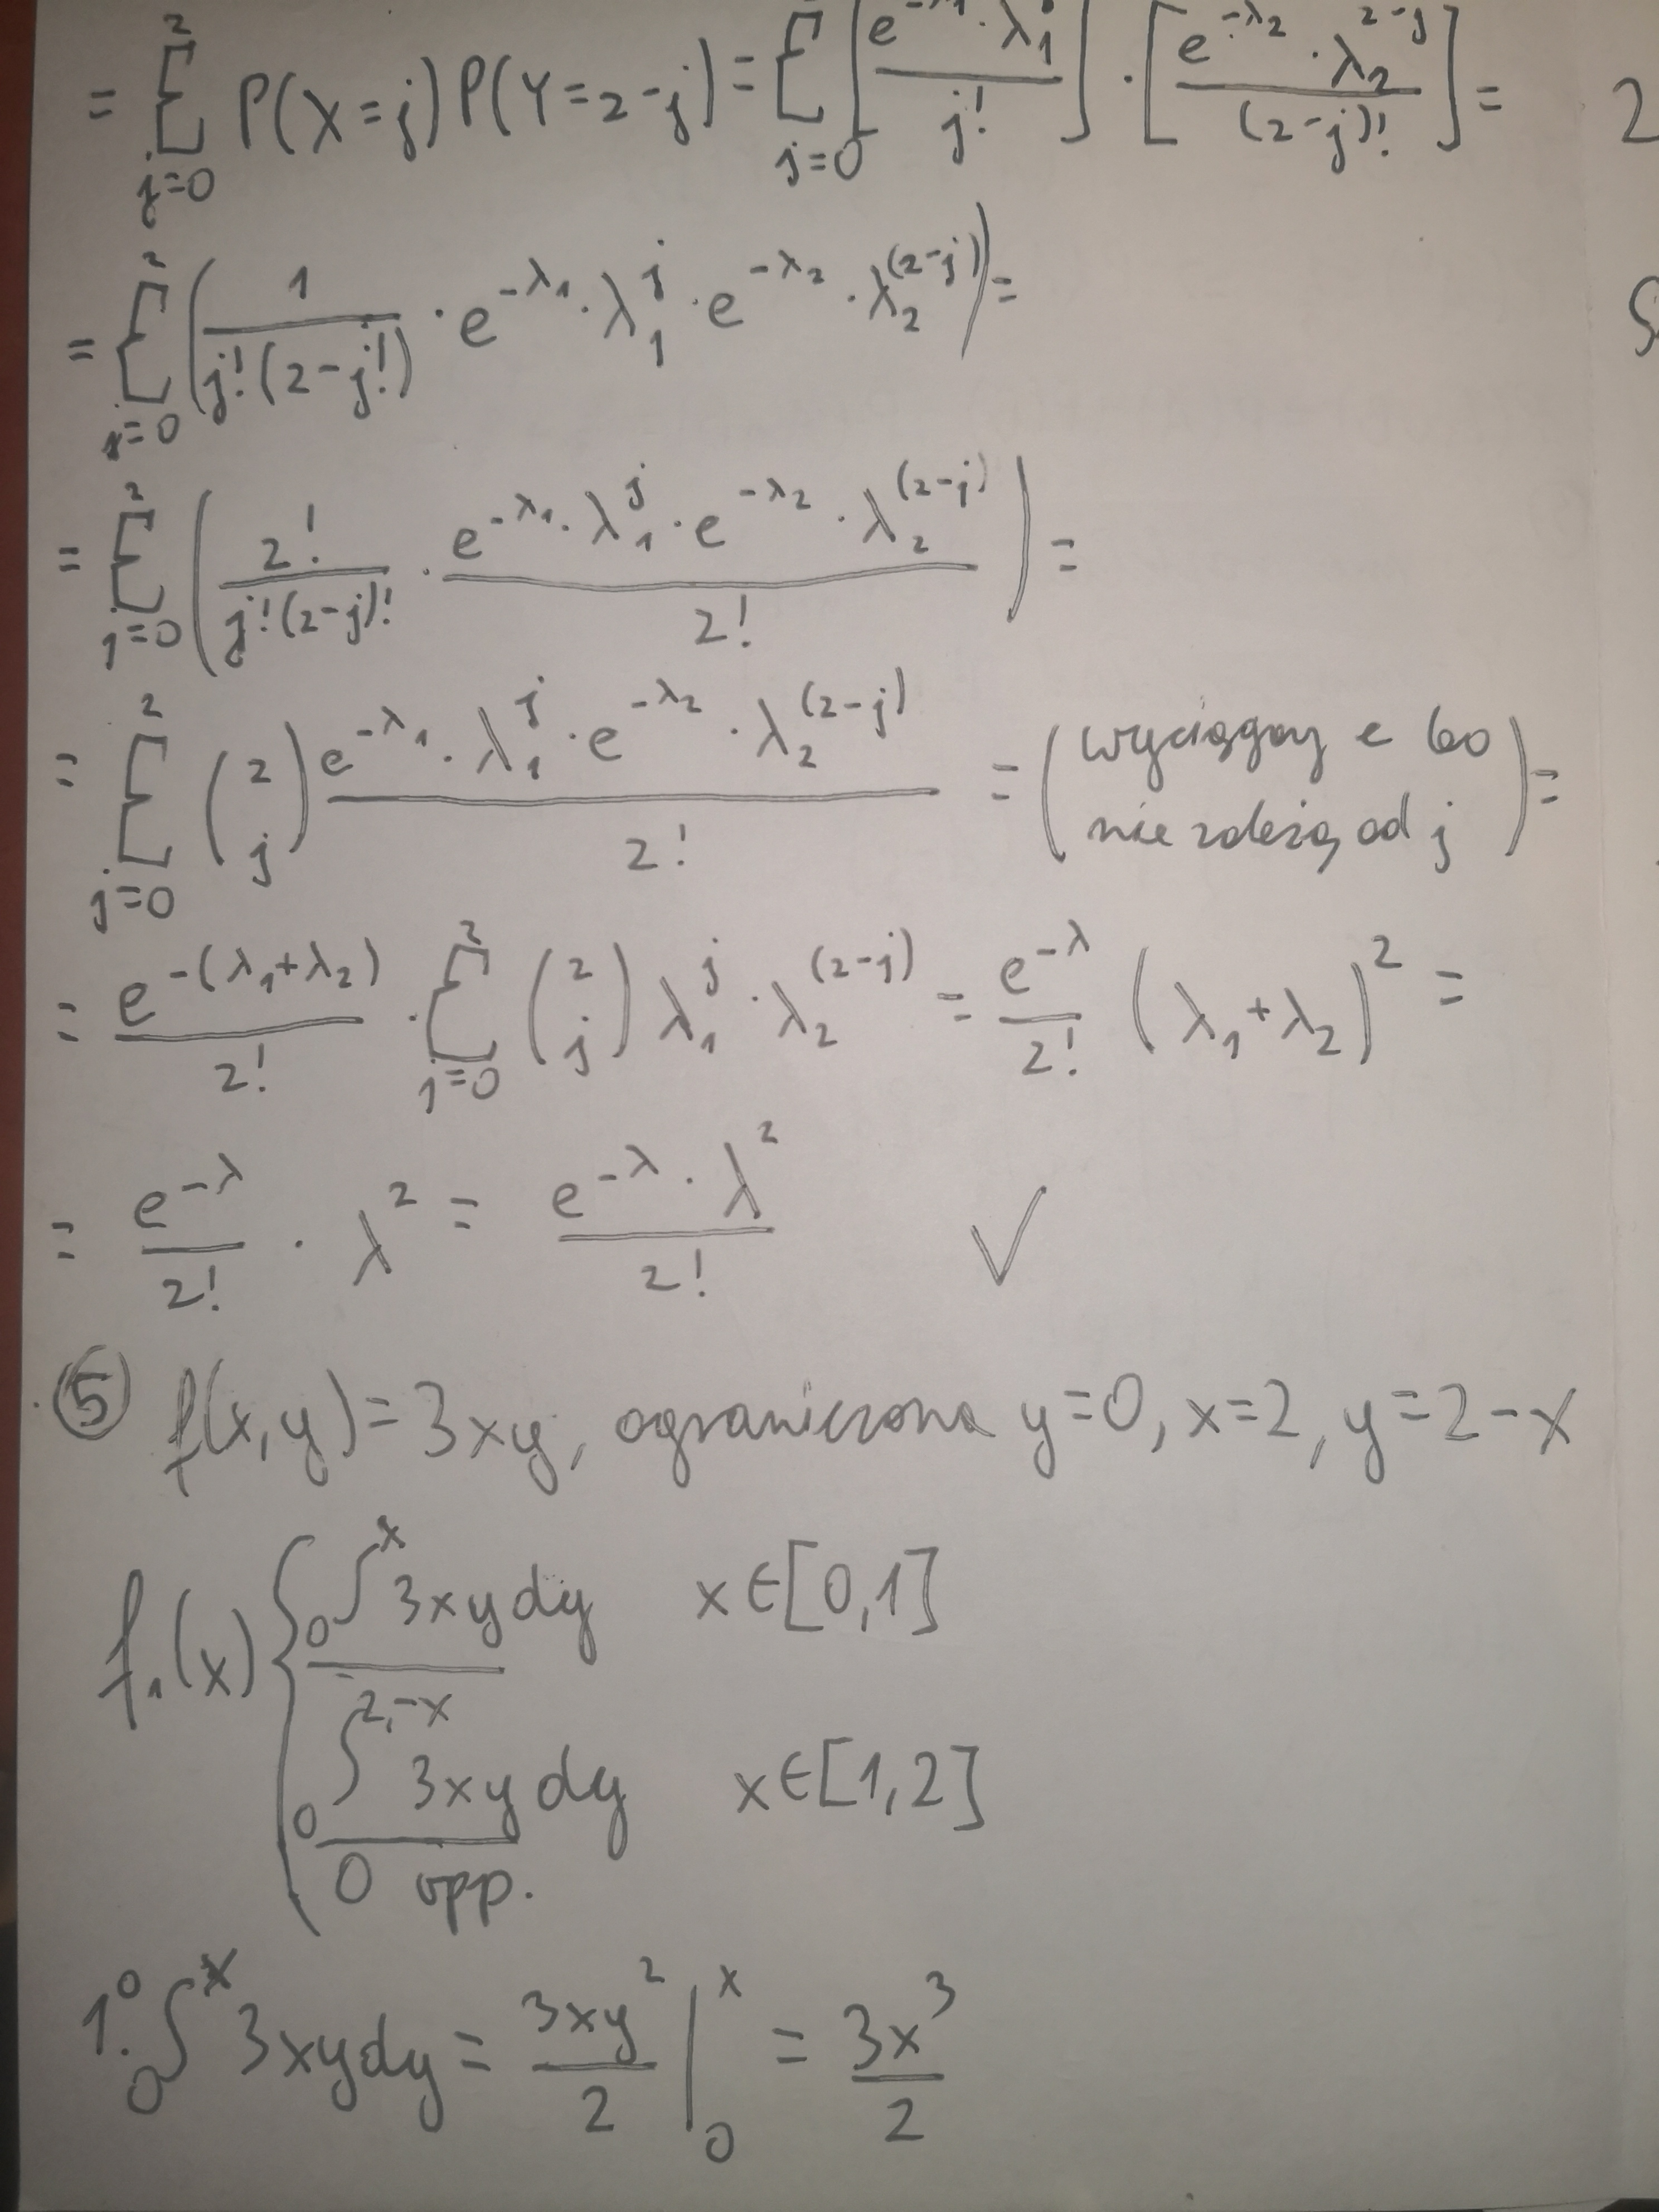 = ∑_{j=0}^{2} P(X=j) P(Y=2-j) = ∑_{j=0} [e^{-λ_1} · λ_1^j / j!] · [e^{-λ_2} · λ_2^{2-j} / (2-j)!] = 2
= ∑_{j=0}^{2} (1 / j!(2-j!) · e^{-λ_1} · λ_1^j · e^{-λ_2} · λ_2^{(2-j)}) =
= ∑_{j=0}^{2} (2! / j!(2-j)! · e^{-λ_1} · λ_1^j · e^{-λ_2} · λ_2^{(2-j)} / 2!) =
= ∑_{j=0}^{2} (2 j) e^{-λ_1} · λ_1^j · e^{-λ_2} · λ_2^{(2-j)} / 2! = (wyciągamy e bo nie zależą od j) =
= e^{-(λ_1+λ_2)} / 2! · ∑_{j=0}^{2} (2 j) λ_1^j · λ_2^{(2-j)} = e^{-λ} / 2! (λ_1+λ_2)^2 =
= e^{-λ} / 2! · λ^2 = e^{-λ} · λ^2 / 2! ✓
⑤ f(x,y)=3xy, ograniczona y=0, x=2, y=2-x
f_1(x) { ∫_0^x 3xydy x∈[0,1]
∫_0^{2-x} 3xydy x∈[1,2]
0 wpp.
1.° ∫_0^x 3xydy = 3xy^2 / 2 |_0^x = 3x^3 / 2